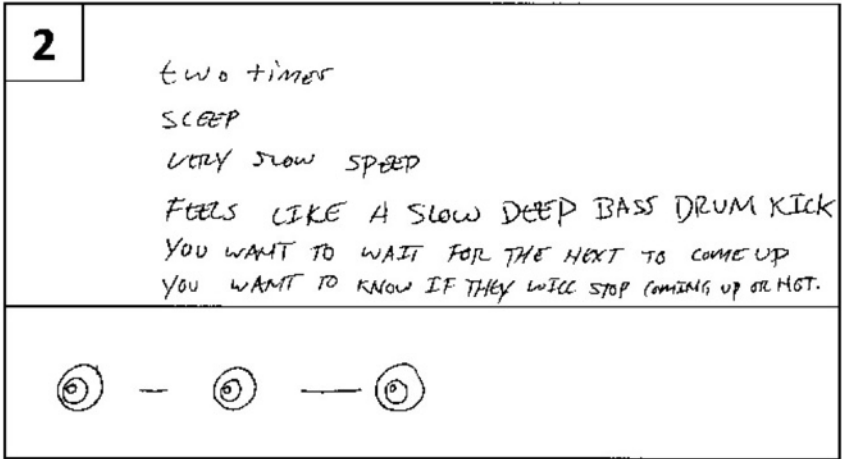 2
two times
SLEEP
VERY SLOW SPEED
FEELS LIKE A SLOW DEEP BASS DRUM KICK
YOU WANT TO WAIT FOR THE NEXT TO COME UP
YOU WANT TO KNOW IF THEY WILL STOP COMING UP OR NOT.